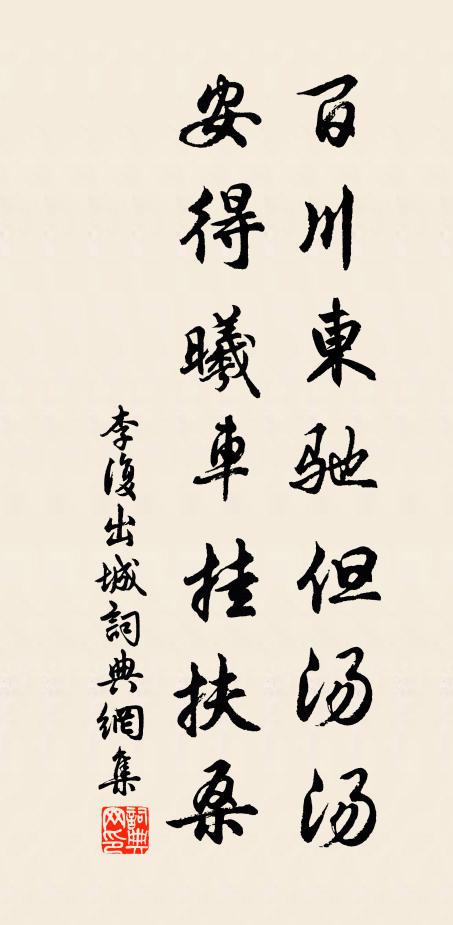 百川東馳但汤汤
安得曦車挂扶桑
李復出城詞典網集
詞典网印